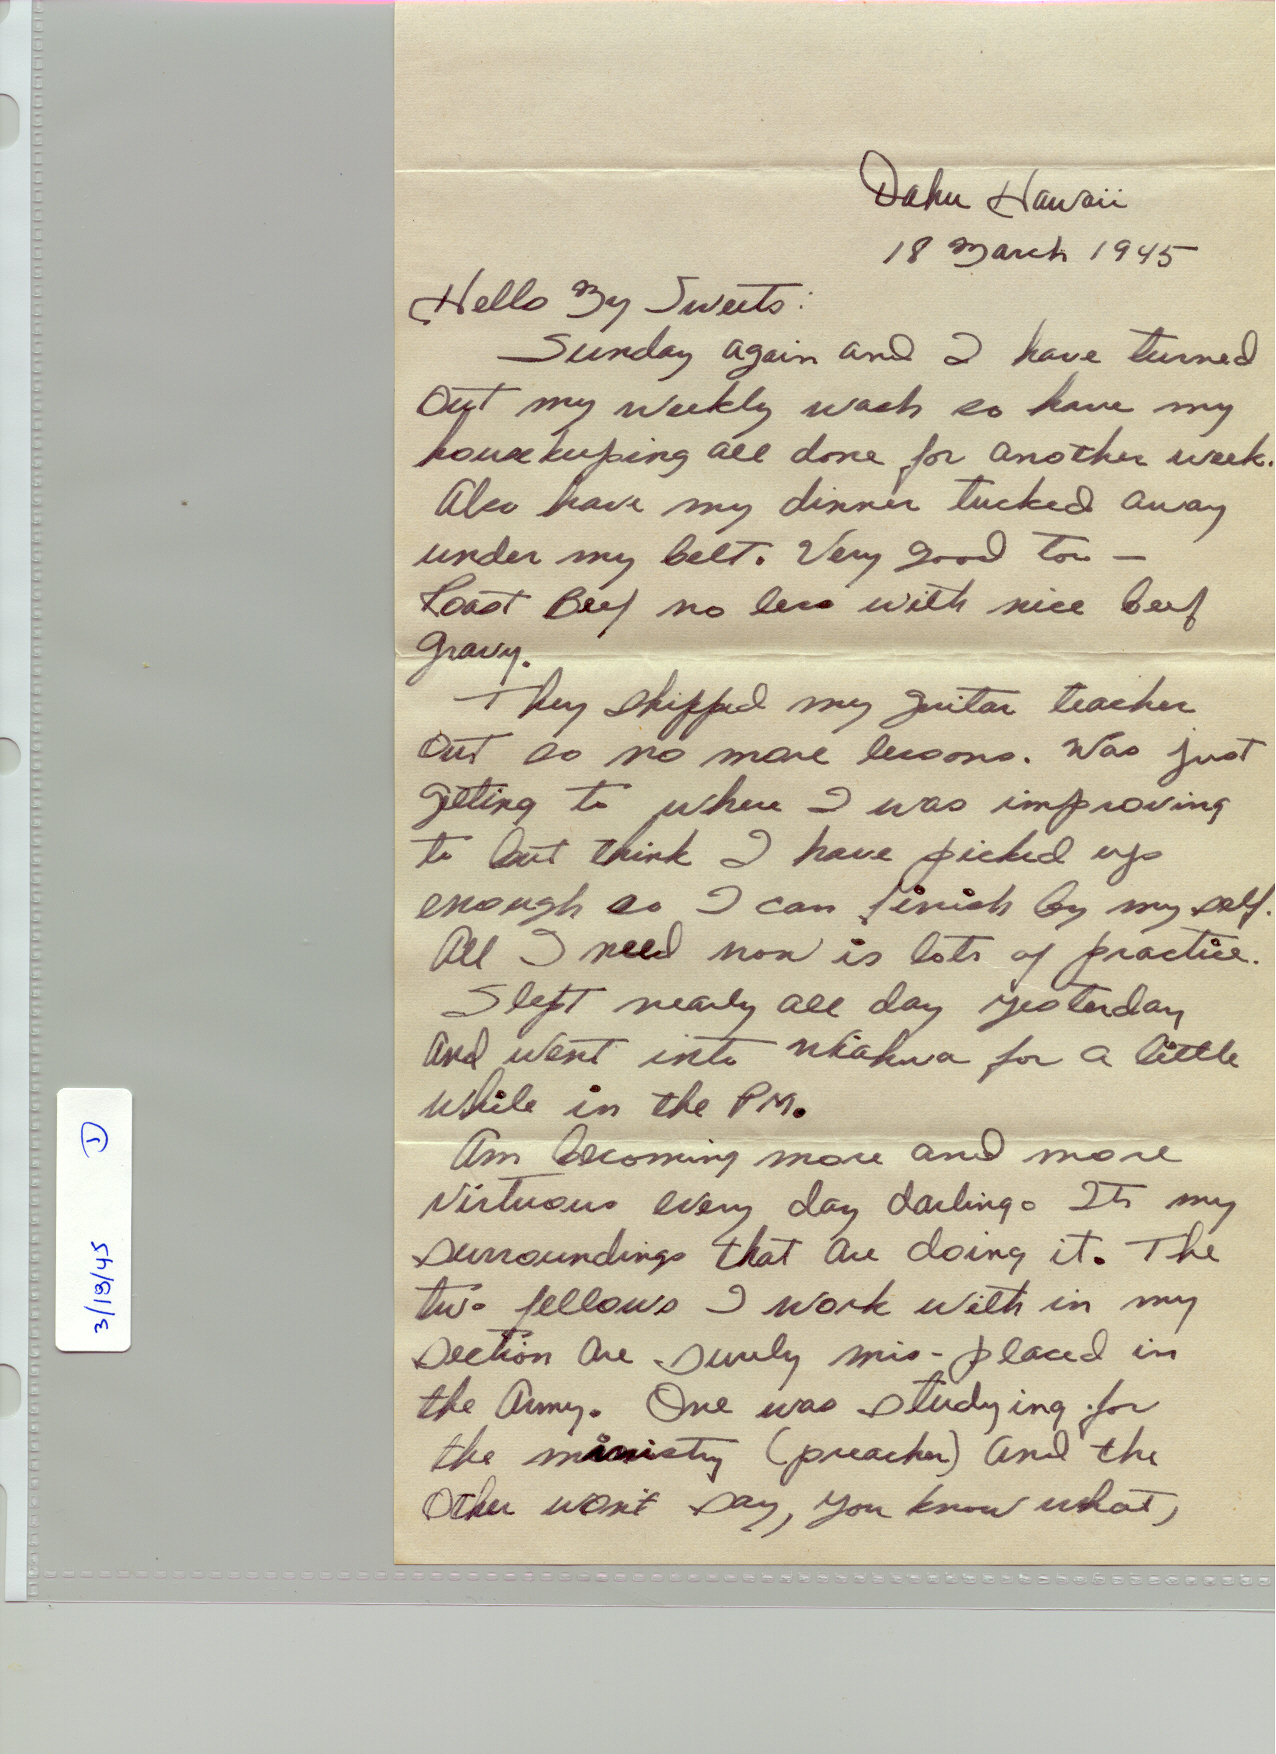 Oahu Hawaii
18 March 1945
Hello My Sweets:
Sunday again and I have turned
out my weekly wash so have my
housekeeping all done for another week.
Also have my dinner tucked away
under my belt. Very good too —
Roast Beef no less with nice beef
gravy.
They shipped my guitar teacher
out so no more lessons. Was just
getting to where I was improving
to but think I have picked up
enough so I can finish by my self.
All I need now is lots of practice.
Slept nearly all day yesterday
and went into for a little
while in the PM.
Am becoming more and more
virtuous every day darling. Its my
surroundings that are doing it. The
two fellows I work with in my
section are surely mis-placed in
the Army. One was studying for
the ministry (preacher) and the
other won't say, you know what,
3/18/45 1